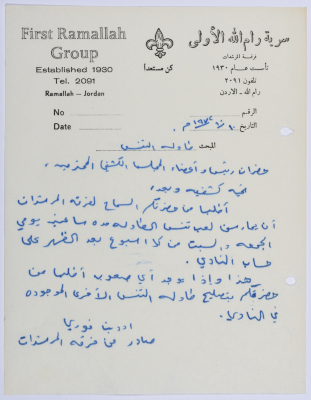 First Ramallah
Group
Established 1930
Tel. 2091
Ramallah - Jordan
No
Date
سرية رام الله الأولى
فرقة المرشدات
تأسست عام ١٩٣٠
تلفون ٢٠٩١
رام الله - الأردن
كن مستعداً
الرقم
التاريخ
للبحث طاولة التنس
حضرات رئيس و أعضاء المجلس الكشفي المحترمين ،
تحية كشفية وبعد ،
أطلب من حضرتكم السماح لفرقة المرشدات
أن يمارسن لعب تنس الطاولة مدة ساعتين يومي
الجمعة والسبت من كل اسبوع بعد الظهر على
حساب النادي .
هذا وإذا يوجد أي صعوبة أطلب من
حضرتكم بتصليح طاولة التنس الأخرى الموجودة
في النادي .
فوزي
صادر عن فرقة المرشدات